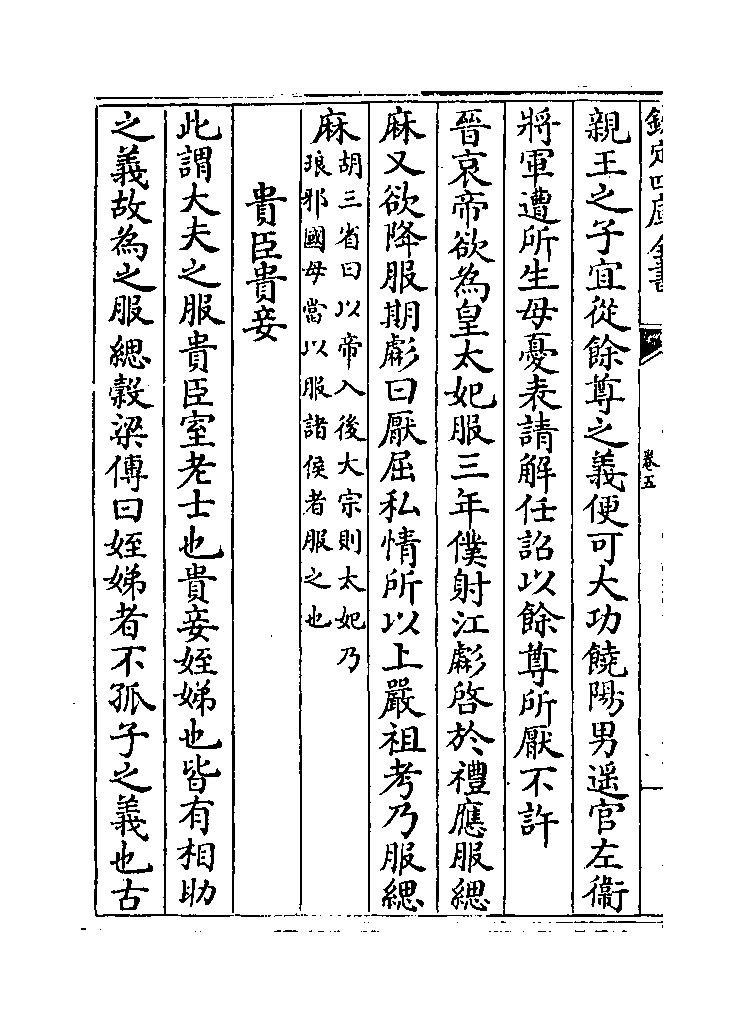 欽定四庫全書
卷五
親王之子宜從餘尊之義便可大功饒陽男遥官左衞
將軍遭所生母憂表請解任詔以餘尊所厭不許
晉哀帝欲為皇太妃服三年僕射江虨啓於禮應服緦
麻又欲降服期虨曰厭屈私情所以上嚴祖考乃服緦
麻胡三省曰以帝入後大宗則太妃乃
琅邪國母當以服諸侯者服之也
貴臣貴妾
此謂大夫之服貴臣室老士也貴妾姪娣也皆有相助
之義故為之服緦穀梁傳曰姪娣者不孤子之義也古